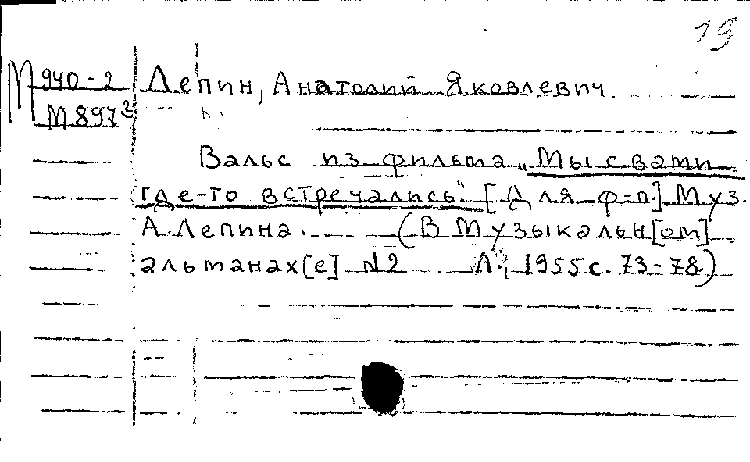 19
М 940-2 Лепин, Анатолий Яковлевич.
М897²
Вальс из фильма „Мы с вами
где-то встречались" [Для ф-п.] Муз.
А. Лепина. (В Музыкальн[ом]
альманах[е] N2 Л., 1955 с. 73-78)